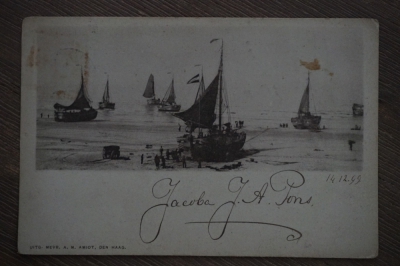 14.12.99
Jacoba J. A. Pons.
UITG. MEVR. A. M. AMIOT, DEN HAAG.